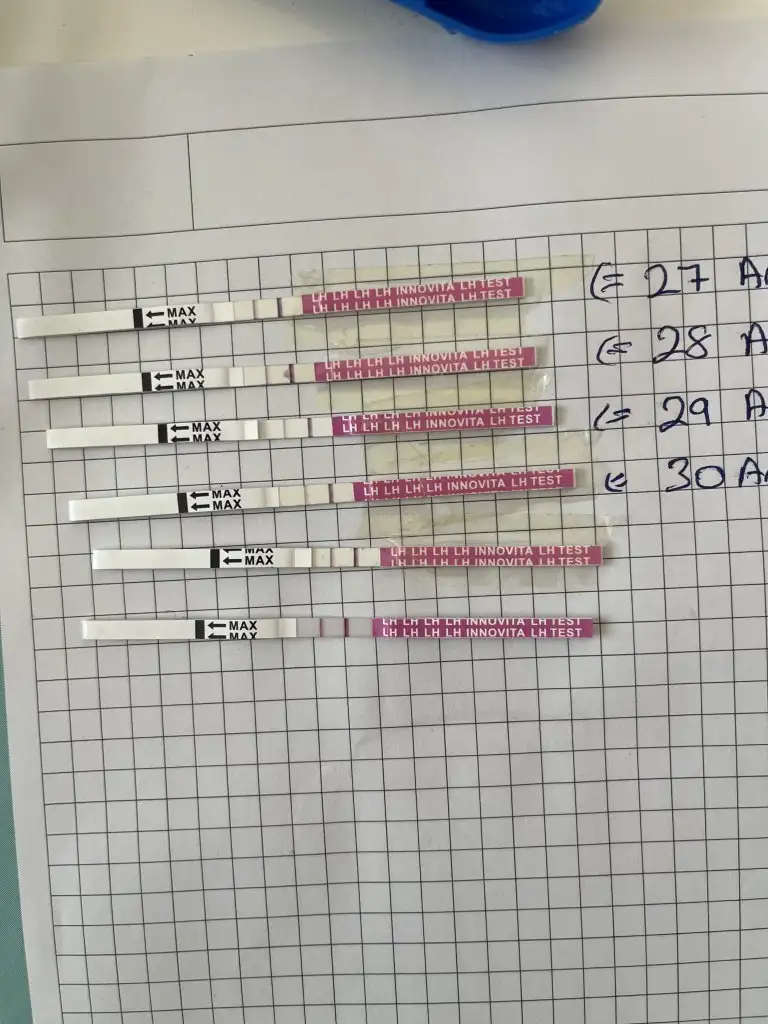 MAX
MAX
LH LH LH LH INNOVITA LH TEST
LH LH LH LH INNOVITA LH TEST
(= 27
MAX
MAX
LH LH LH LH INNOVITA LH TEST
LH LH LH LH INNOVITA LH TEST
(= 28
MAX
MAX
LH LH LH LH INNOVITA LH TEST
LH LH LH LH INNOVITA LH TEST
(= 29
MAX
MAX
LH LH LH LH INNOVITA LH TEST
30
MAX
MAX
LH LH LH LH INNOVITA LH TEST
LH LH LH LH INNOVITA LH TEST
MAX
MAX
LH LH LH LH INNOVITA LH TEST
LH LH LH LH INNOVITA LH TEST